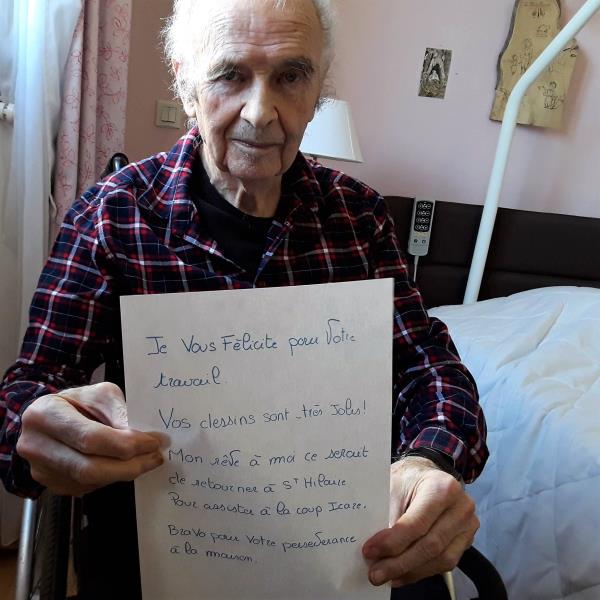 Je Vous Félicite pour Votre
travail.
Vos dessins sont très Jolis!
Mon rêve à moi ce serait
de retourner à Sᵗ Hilaire
Pour assister à la coup Icare.
Bravo pour Votre perseverance
à la maison.